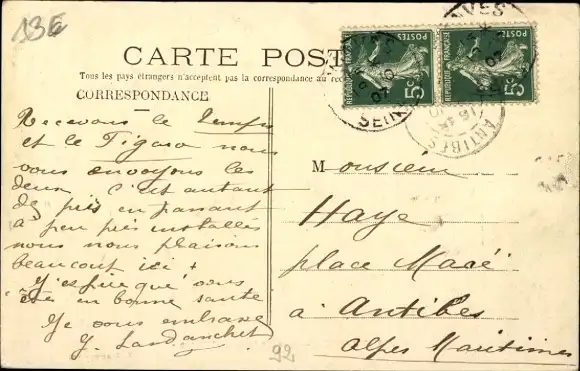 13E
CARTE POSTALE
Tous les pays étrangers n'acceptent pas la correspondance au rec
CORRESPONDANCE
POSTES
REPUBLIQUE FRANÇAISE
5c
POSTES
REPUBLIQUE FRANÇAISE
5c
SEINE
ANTIBES
Recevons le Temps
et le Figaro nous
vous envoyons les
deux. C'est autant
de pris en passant
à peu près installés
nous nous plaisons
beaucoup ici
J'espère que vous
êtes en bonne santé
Je vous embrasse
Monsieur
Haye
place Macé
à Antibes
Alpes Maritimes
92